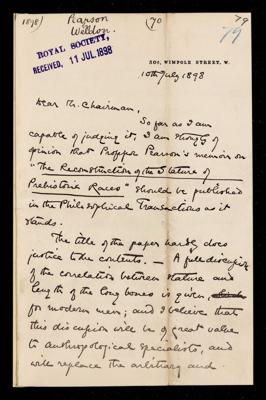 1898)
Pearson
Welldon.
(70
79
79
ROYAL SOCIETY,
RECEIVED, 11 JUL. 1898
WIMPOLE STREET, W.
10th July 1898
Dear Mr. Chairman,
So far as I am
capable of judging it, I am strongly of
opinion that Professor Pearson's memoir on
"The Reconstruction of the Stature of
Prehistoric Races" should be published
in the Philosophical Transactions as it
stands.
The title of the paper hardly does
justice to the contents. — A full discussion
of the correlation between stature and
length of the long bones is given,
for modern men; and I believe that
this discussion will be of great value
to anthropological specialists, and
will replace the arbitrary and